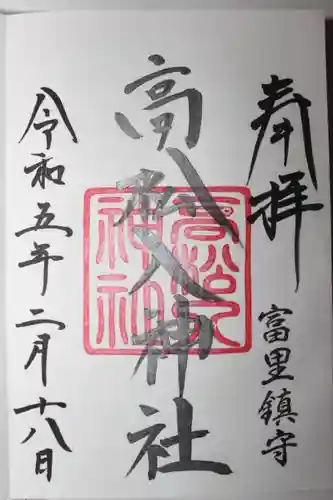 奉拝
富里鎮守
高松八神社
令和五年二月十八日